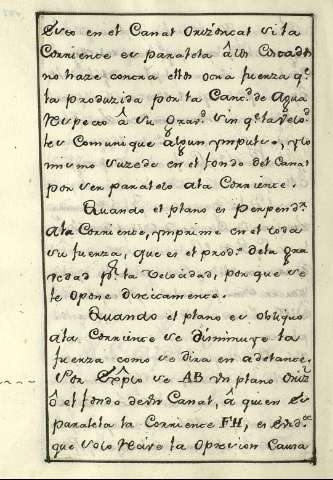 Esto en el Canal Orizontal si la
Corriente es paralela â los Costados
no haze contra ellos otra fuerza q.e
la produzida por la Cant.d de Agua
Respecto â su Grav.d sin q.e la Veloc.d
les Comunique algun ympulso, y lo
mismo suzede en el fondo del Canal
por ser paralelo ala Corriente.
Quando el plano es perpend.r
ala Corriente, ymprime en el toda
su fuerza, que es el prod.o dela gra
vedad p.r la Velocidad, por que se
le opone directamente.
Quando el plano es obliquo
ala Corriente se diminuye la
fuerza como se dira en adelante.
Por Exp.lo se AB un plano Oriz.l
ô el fondo de un Canal, â quien es
paralela la Corriente FH, es Evid.te
que solo Recive la Opresion Causa